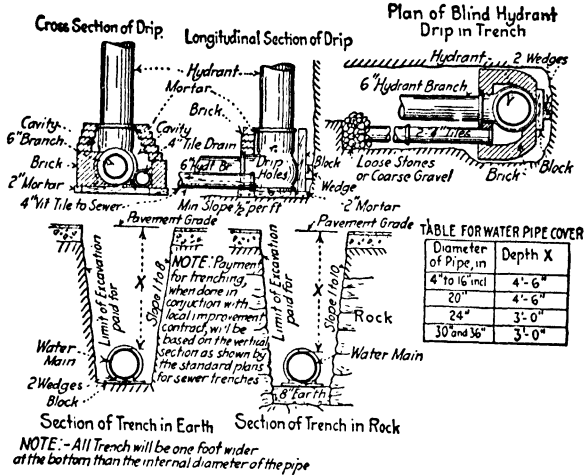 Cross Section of Drip.
Longitudinal Section of Drip
Plan of Blind Hydrant
Drip in Trench
Hydrant
Mortar
Brick
Cavity
6" Branch
Brick
2" Mortar
4" Vit Tile to Sewer
Cavity
4" Tile Drain
6" Hydt Br
Drip
Holes
Block
Wedge
Min Slope 1/2" per ft
2" Mortar
Hydrant
2 Wedges
6" Hydrant Branch
2-4" Tiles
Loose Stones
or Coarse Gravel
Brick
Block
Pavement Grade
Pavement Grade
Limit of Excavation
paid for
X
Slope 1 to 8
NOTE: Paymen
for trenching,
when done in
conjuction with
local improvement
contract, will be
based on the vertical
section as shown by
the standard plans
for sewer trenches
Limit of Excavation
paid for
X
Slope 1 to 10
Rock
Water
Main
2 Wedges
Block
Water Main
8" Earth
TABLE FOR WATER PIPE COVER
Diameter of Pipe, in Depth X
4" to 16" incl 4'-6"
20" 4'-6"
24" 3'-0"
30" and 36" 3'-0"
Section of Trench in Earth
Section of Trench in Rock
NOTE:- All Trench will be one foot wider
at the bottom than the internal diameter of the pipe